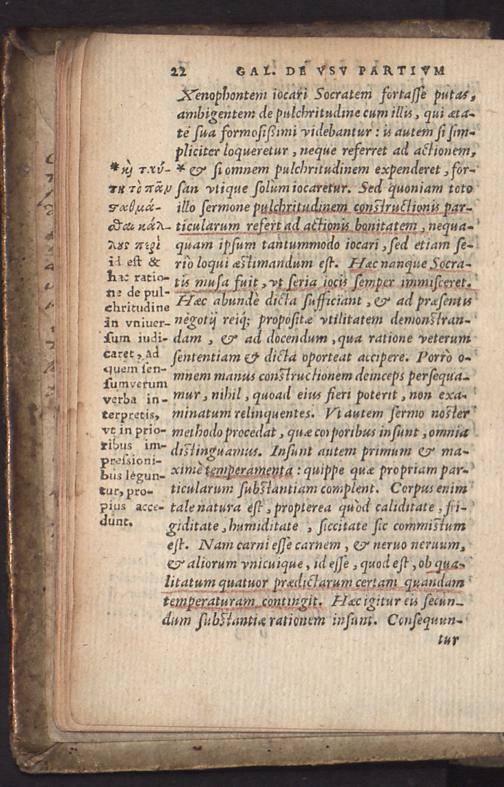 22 GAL. DE VSV PARTIVM
Xenophontem iocari Socratem fortasse putas,
ambigentem de pulchritudine cum illis, qui æta-
te sua formosissimi videbantur: is autem si sim-
pliciter loqueretur, neque referret ad actionem,
* & si omnem pulchritudinem expenderet, for-
san vtique solùm iocaretur. Sed quoniam toto
illo sermone pulchritudinem constructionis par-
ticularum refert ad actionis bonitatem, nequa-
quam ipsum tantummodo iocari, sed etiam se-
riò loqui æstimandum est. Hæc nanque Socra-
tis musa fuit, vt seria iocis semper immisceret.
Hæc abundè dicta sufficiant, & ad præsentis
negotij reiq; propositæ vtilitatem demonstran-
dam, & ad docendum, qua ratione veterum
sententiam & dicta oporteat accipere. Porrò o-
mnem manus constructionem deinceps persequa-
mur, nihil, quoad eius fieri poterit, non exa-
minatum relinquentes. Vt autem sermo noster
methodo procedat, quæ corporibus insunt, omnia
distinguamus. Insunt autem primum & ma-
ximè temperamenta: quippe quæ propriam par-
ticularum substantiam complent. Corpus enim
tale natura est, propterea quòd caliditate, fri-
giditate, humiditate, siccitate sic commistum
est. Nam carni esse carnem, & neruo neruum,
& aliorum vnicuique, id esse, quod est, ob qua-
litatum quatuor prædictarum certam quandam
temperaturam contingit. Hæc igitur eis secun-
dum substantiæ rationem insunt. Consequun-
tur
* ϗ ταύ-
τῃ τὸ πᾶν
σαθμᾶ-
σθαι κάλ-
λος περὶ
id est &
hac ratio-
ne de pul-
chritudine
in vniuer-
sum iudi-
caret, ad
quem sen-
sum verum
verba in-
terpretis,
vt in prio-
ribus im-
pressioni-
bus legun-
tur, pro-
pius acce-
dunt.